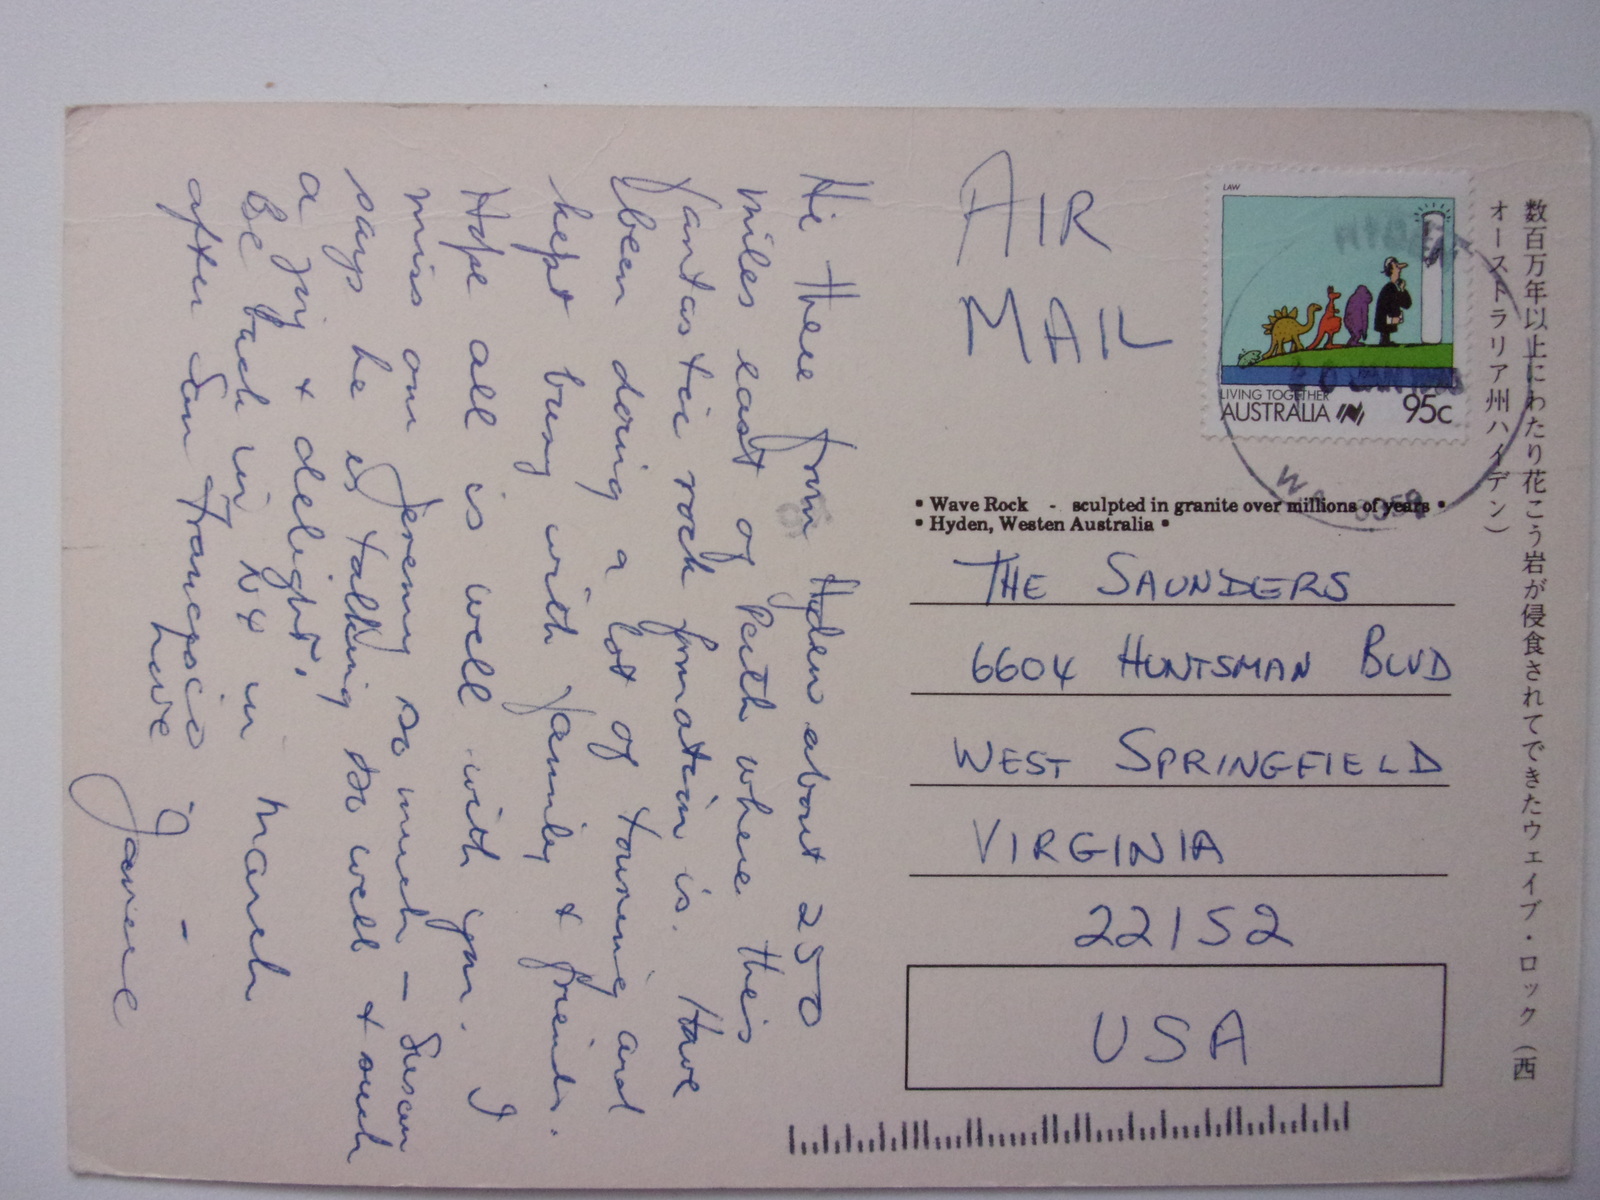 Hi there from Hyden about 250
miles east of Perth where this
fantastic rock formation is. Have
been doing a lot of touring and
kept busy with family & friends.
Hope all is well with you. I
miss our Jeremy so much – Susan
says he is talking so well & such
a joy & delight.
Be back in NY in March
after San Francisco –
Love
Janice
AIR
MAIL
LAW
LIVING TOGETHER
AUSTRALIA 95c
• Wave Rock - sculpted in granite over millions of years •
• Hyden, Westen Australia •
THE SAUNDERS
6604 HUNTSMAN BLVD
WEST SPRINGFIELD
VIRGINIA
22152
USA
数百万年以上にわたり花こう岩が侵食されてできたウェイブ・ロック（西
オーストラリア州ハイデン）